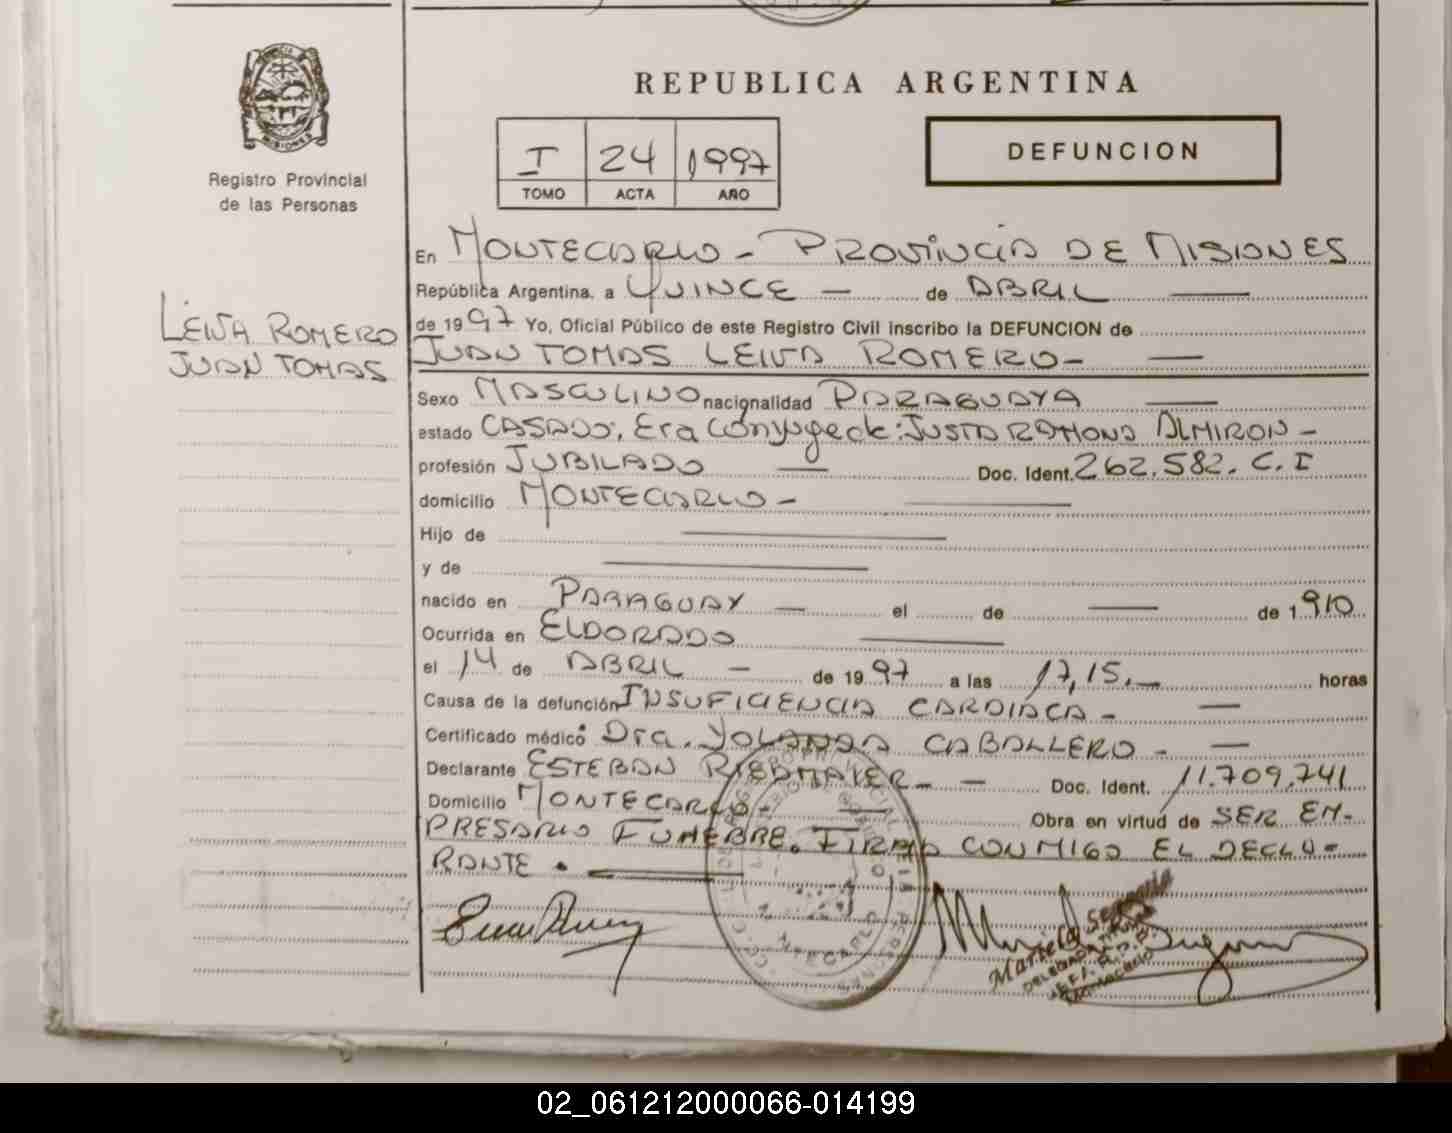 REPUBLICA ARGENTINA
MISIONES
Registro Provincial
de las Personas
I 24 1997
TOMO ACTA AÑO
DEFUNCION
LEIVA ROMERO
JUAN TOMAS
En MONTECARLO - PROVINCIA DE MISIONES
República Argentina, a QUINCE - de ABRIL
de 1997 Yo, Oficial Público de este Registro Civil inscribo la DEFUNCION de
JUAN TOMAS LEIVA ROMERO-
Sexo MASCULINO nacionalidad PARAGUAYA
estado CASADO, Era Cónyuge de: JUSTA RAMONA ALMIRON -
profesión JUBILADO Doc. Ident. 262.582. C. I
domicilio MONTECARLO -
Hijo de
y de
nacido en PARAGUAY - el de de 1.910
Ocurrida en ELDORADO
el 14 de ABRIL - de 1997 a las 17,15.- horas
Causa de la defunción INSUFICIENCIA CARDIACA -
Certificado médico Dra. YOLANDA CABALLERO -
Declarante ESTEBAN RIEDMAIER - - Doc. Ident. 11.709.741
Domicilio MONTECARLO - Obra en virtud de SER EM-
PRESARIO FUNEBRE. FIRMA CONMIGO EL DECLA-
RANTE.
DELEGADA
02_061212000066-014199